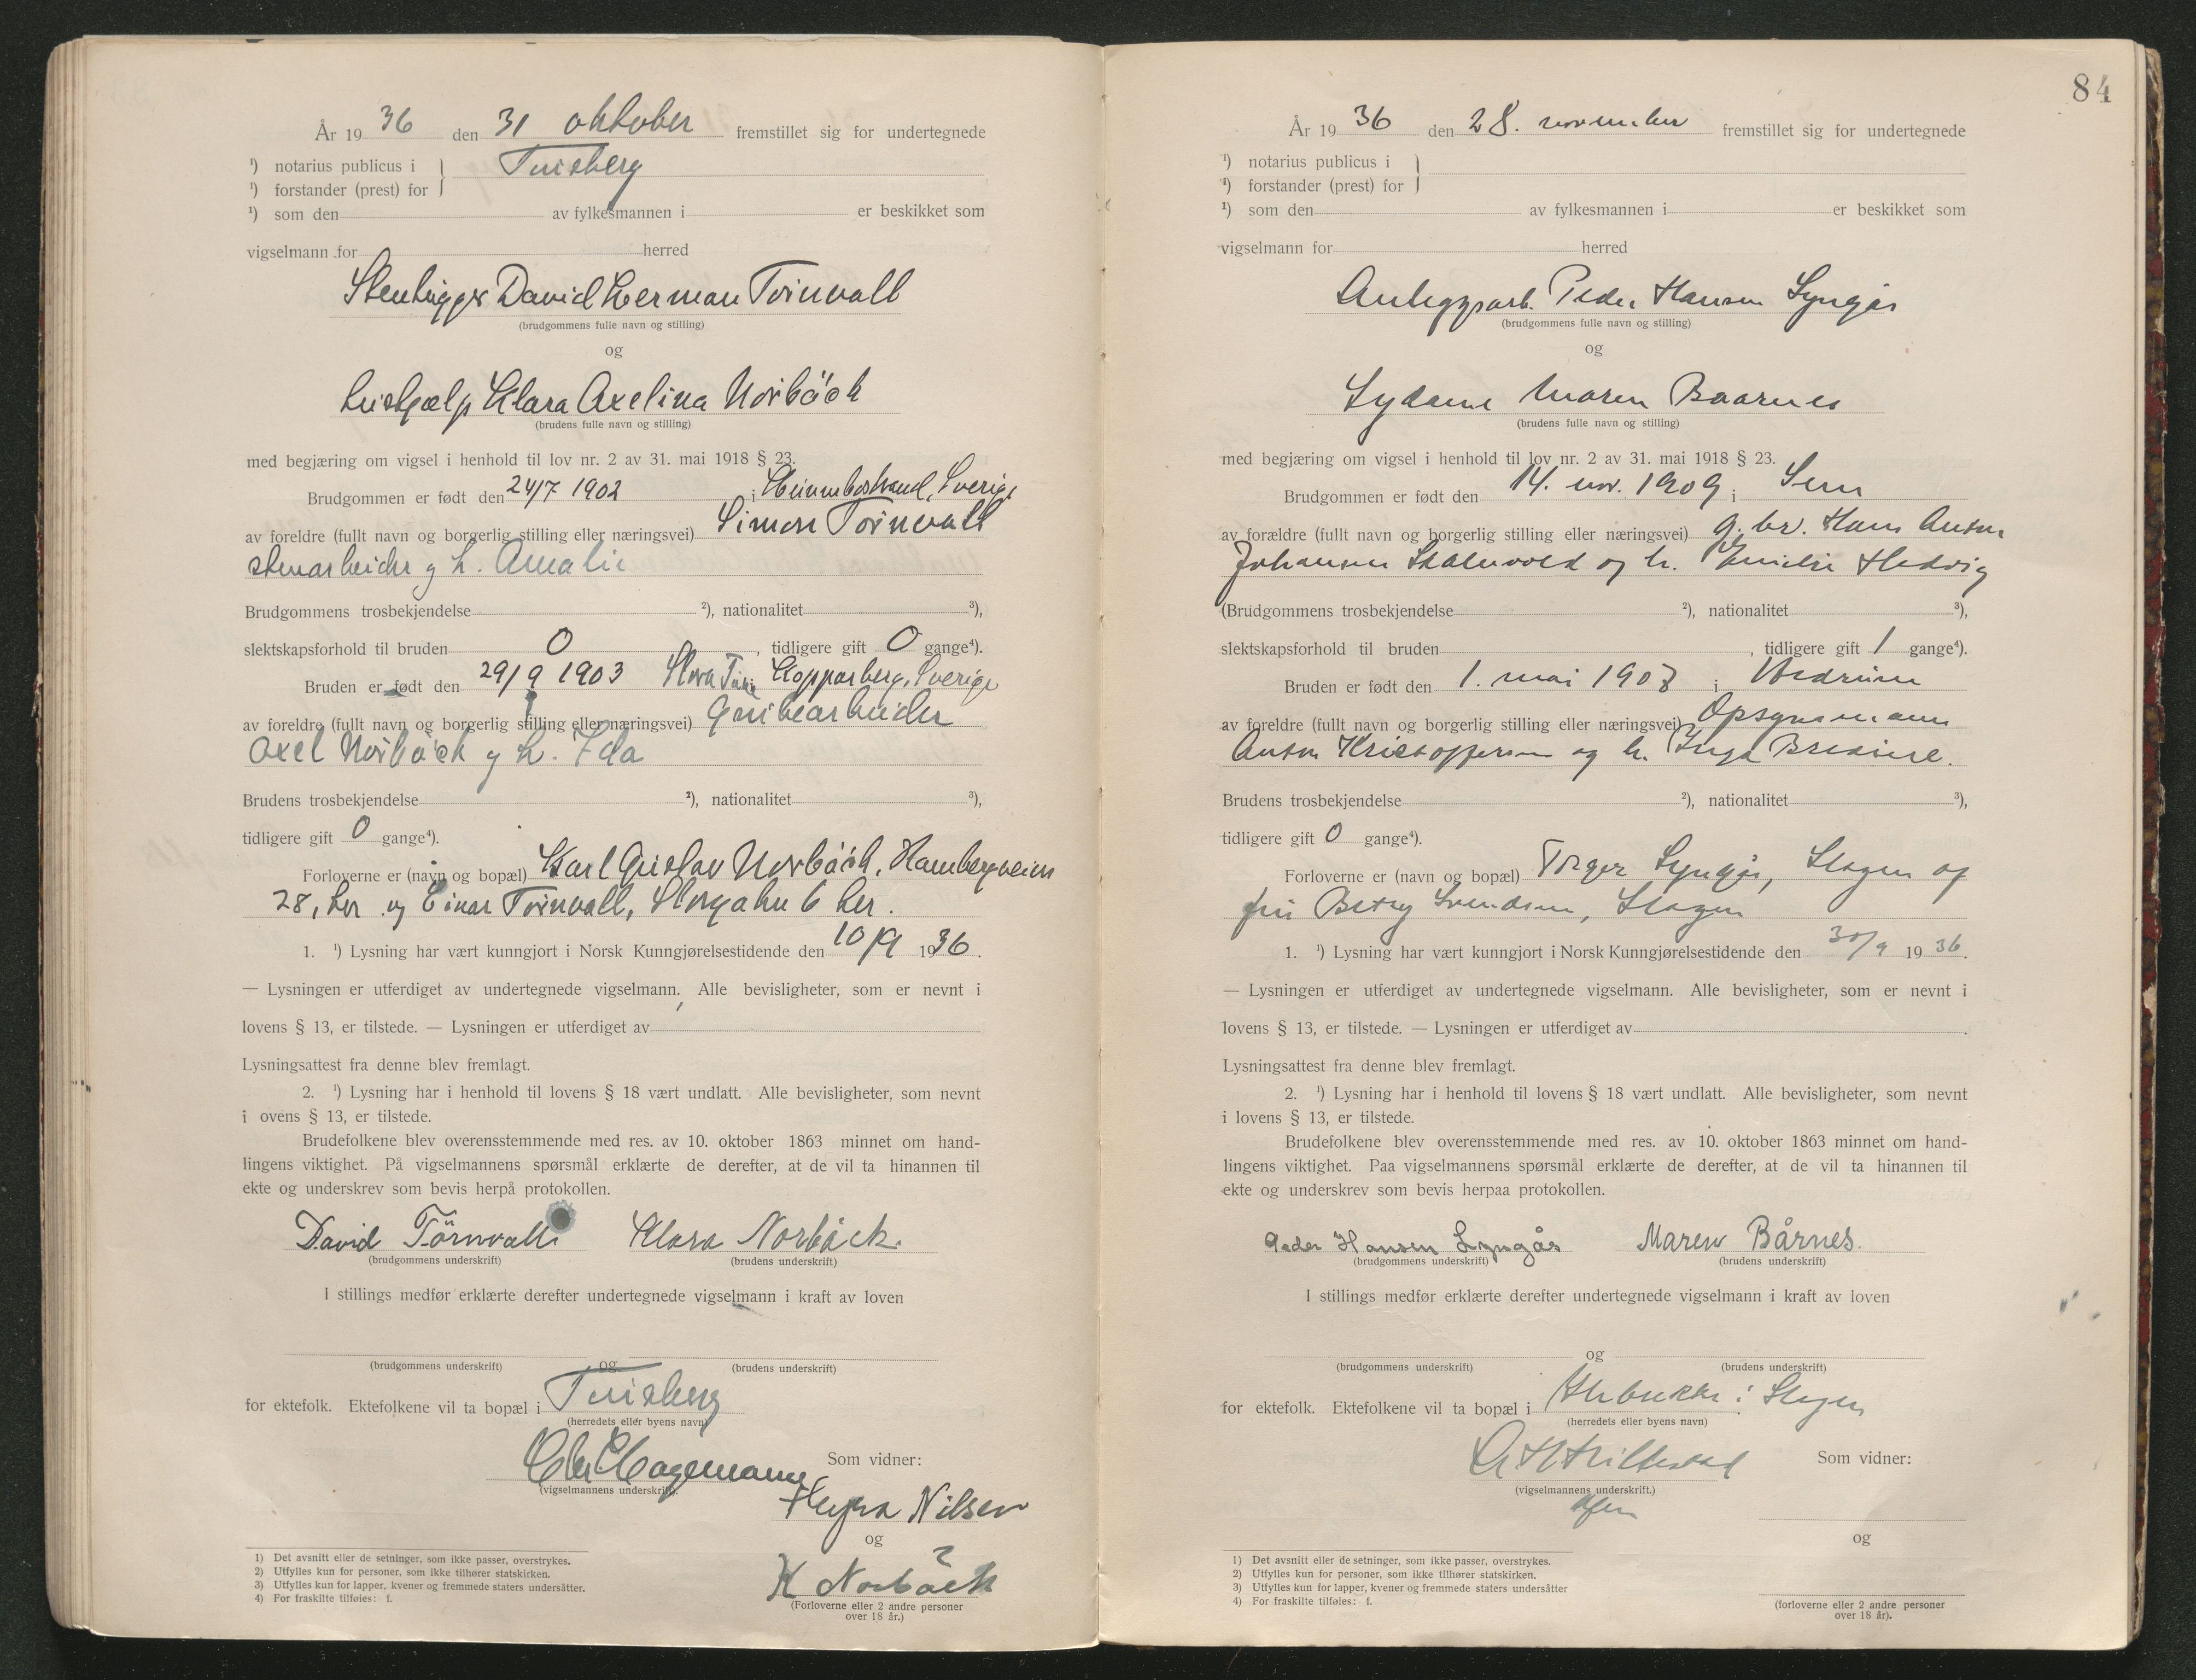 År 1936 den 31 oktober fremstillet sig for undertegnede
¹) notarius publicus i } Tønsberg
¹) forstander (prest) for
¹) som den av fylkesmannen i er beskikket som
vigselmann for herred
Stenhugger David Herman Törnvall
(brudgommens fulle navn og stilling)
og
Hushjælp Klara Axelina Norbäck
(brudens fulle navn og stilling)
med begjæring om vigsel i henhold til lov nr. 2 av 31. mai 1918 § 23.
Brudgommen er født den 24/7 1902 i Hunnebostrand, Sverige
av foreldre (fullt navn og borgerlig stilling eller næringsvei) Simon Törnvall
stenarbeider og h. Amalie
Brudgommens trosbekjendelse ²), nationalitet ³),
slektskapsforhold til bruden 0, tidligere gift 0 gange⁴).
Bruden er født den 29/9 1903 Stora Tuna i Kopparberg, Sverige
av foreldre (fullt navn og borgerlig stilling eller næringsvei) Grubearbeider
Axel Norbäck og h. Ida
Brudens trosbekjendelse ²), nationalitet ³),
tidligere gift 0 gange⁴).
Forloverne er (navn og bopæl) Karl Gustav Norbäck, Hambergveien
28, her og Einar Törnvall, Storgaten 6 her.
1. ¹) Lysning har vært kunngjort i Norsk Kunngjørelsestidende den 10/9 1936.
— Lysningen er utferdiget av undertegnede vigselmann. Alle bevisligheter, som er nevnt i
lovens § 13, er tilstede. — Lysningen er utferdiget av
Lysningsattest fra denne blev fremlagt.
2. ¹) Lysning har i henhold til lovens § 18 vært undlatt. Alle bevisligheter, som nevnt
i ovens § 13, er tilstede.
Brudefolkene blev overensstemmende med res. av 10. oktober 1863 minnet om hand-
lingens viktighet. På vigselmannens spørsmål erklærte de derefter, at de vil ta hinannen til
ekte og underskrev som bevis herpå protokollen.
David Törnvall Klara Norbäck.
(brudgommens underskrift) (brudens underskrift)
I stillings medfør erklærte derefter undertegnede vigselmann i kraft av loven
og
(brudgommens underskrift) (brudens underskrift)
for ektefolk. Ektefolkene vil ta bopæl i Tønsberg
(herredets eller byens navn)
Chr Hagemann Som vidner:
(vigselmannens underskrift).
Nilsen
og
K Norbäck
(Forloverne eller 2 andre personer
over 18 år.)
1) Det avsnitt eller de setninger, som ikke passer, overstrykes.
2) Utfylles kun for personer, som ikke tilhører statskirken.
3) Utfylles kun for lapper, kvener og fremmede staters undersåtter.
4) For fraskilte tilføies: f.
84
År 1936 den 28. november fremstillet sig for undertegnede
¹) notarius publicus i }
¹) forstander (prest) for
¹) som den av fylkesmannen i er beskikket som
vigselmann for herred
Anleggsarb. Peder Hansen Lyngås
(brudgommens fulle navn og stilling)
og
Maren Baarnes
(brudens fulle navn og stilling)
med begjæring om vigsel i henhold til lov nr. 2 av 31. mai 1918 § 23.
Brudgommen er født den 14. nov. 1909 i Sem
av forældre (fullt navn og borgerlig stilling eller næringsvei) g.br. Hans Anton
Johansen og h. Emilie Hedvig
(Brudgommens trosbekjendelse ²), nationalitet ³),
slektskapsforhold til bruden , tidligere gift 1 gange⁴).
Bruden er født den 1. mai 1908 i Hedrum
av foreldre (fullt navn og borgerlig stilling eller næringsvei) Opsynsmann
Anton Kristoffersen og h. Inga
Brudens trosbekjendelse ²), nationalitet ³),
tidligere gift 0 gange⁴).
Forloverne er (navn og bopæl) Torger Lyngås, Slagen og
fru Betsy Svendsen, Slagen
1. ¹) Lysning har vært kunngjort i Norsk Kunngjørelsestidende den 30/9 1936.
— Lysningen er utferdiget av undertegnede vigselmann. Alle bevisligheter, som er nevnt i
lovens § 13, er tilstede. — Lysningen er utferdiget av .
Lysningsattest fra denne blev fremlagt.
2. ¹) Lysning har i henhold til lovens § 18 vært undlatt. Alle bevisligheter, som nevnt
i lovens § 13, er tilstede.
Brudefolkene blev overensstemmende med res. av 10. oktober 1863 minnet om hand-
lingens viktighet. Paa vigselmannens spørsmål erklærte de derefter, at de vil ta hinannen til
ekte og underskrev som bevis herpaa protokollen.
Peder Hansen Lyngås Maren Bårnes.
(brudgommens underskrift) (brudens underskrift)
I stillings medfør erklærte derefter undertegnede vigselmann i kraft av loven
og
(brudgommens underskrift) (brudens underskrift)
for ektefolk. Ektefolkene vil ta bopæl i i Slagen
(herredets eller byens navn)
Som vidner:
(vigselmannens underskrift.)
og
(forloverne eller 2 andre personer
over 18 år).
1) Det avsnitt eller de setninger, som ikke passer, overstrykes.
2) Utfylles kun for personer, som ikke tilhører statskirken.
3) Utfylles kun for lapper, kvener og fremmede staters undersåtter
4) For fraskilte tilføies: f.